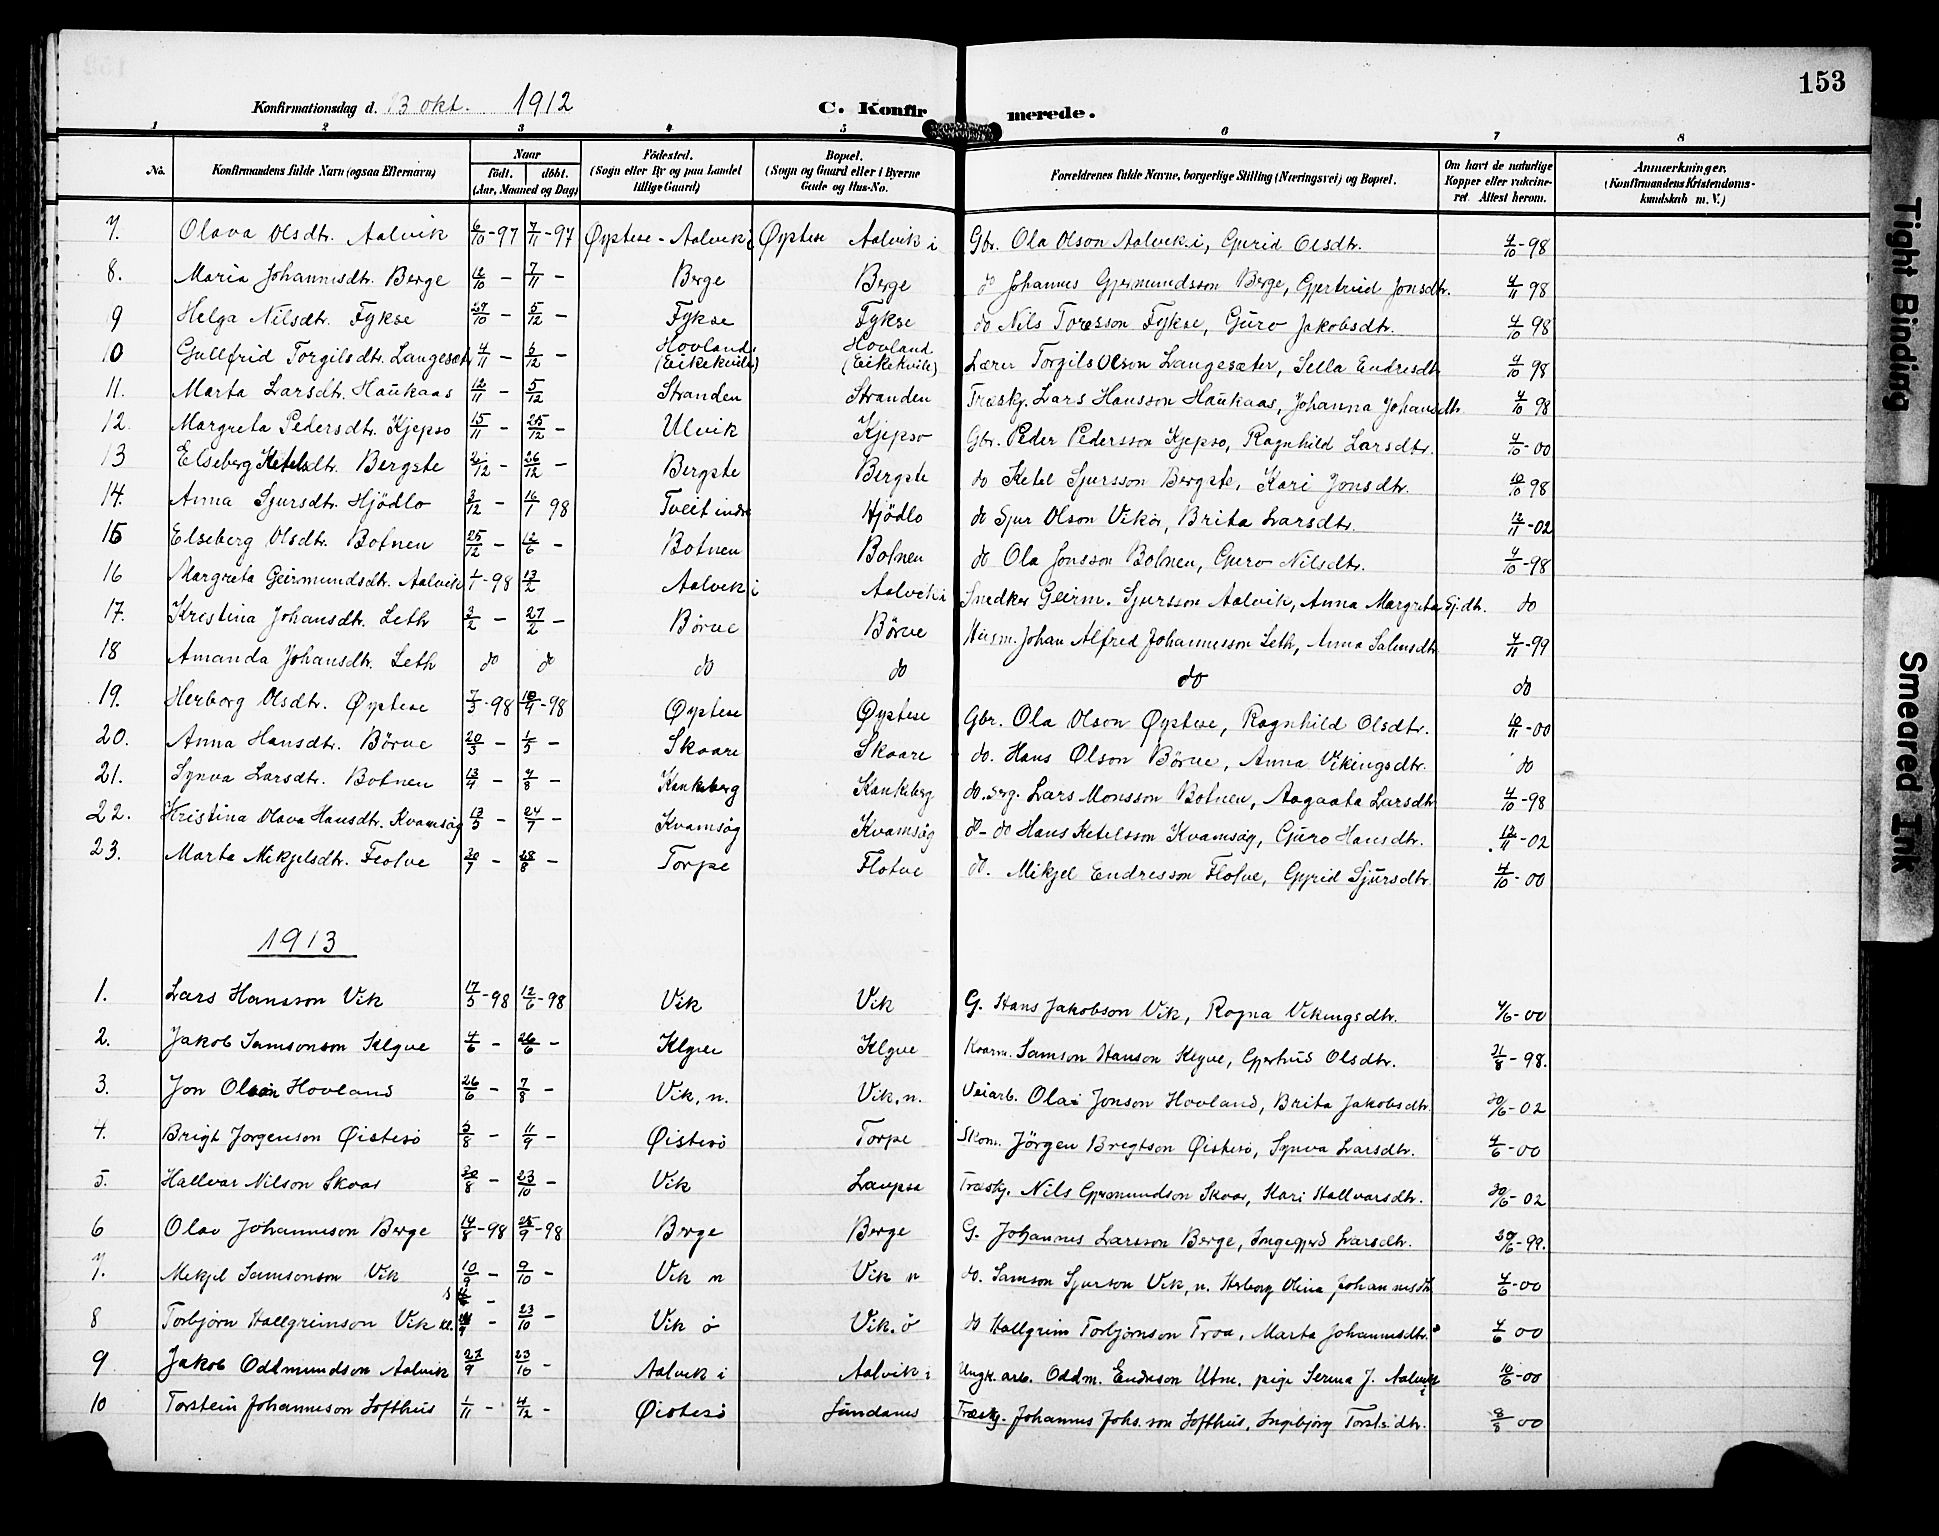 153
Konfirmationsdag d. 13 okt. 1912 C. Konfirmerede.
1 2 3 4 5 6 7 8
No. Konfirmandens fulde Navn (ogsaa Efternavn) Naar født. døbt. (Aar, Maaned og Dag) Fødested. (Sogn eller By og paa Landet tillige Gaard) Bopæl. (Sogn og Gaard eller i Byerne Gade og Hus-No. Forældrenes fulde Navne, borgerlige Stilling (Næringsvei) og Bopæl. Om havt de naturlige Kopper eller vakcineret. Attest herom. Anmærkninger. (Konfirmandens Kristendomskundskab m. V.)
7. Olava Olsdtr. Aalvik 6/10-97 7/11-97 Øystese - Aalvik i Øystese Aalvik i Gbr. Ola Olson Aalvik i, Gjørid Olsdtr. 4/10-98
8. Maria Johannesdtr. Berge 12/10 - 7/11 - Berge Berge do Johannes Gjermundsson Berge, Gjertrud Jonsdtr. 4/11 98
9 Helga Nilsdtr. Fykse 29/10 - 5/12 - Fykse Fykse do Nils Toresson Fykse, Guro Jakobsdtr. 4/10 98
10 Gullfrid Torgilsdtr. Langesæter 4/11 - 5/12 - Hovland (Eikekvile) Hovland (Eikekvile) Lærer Torgils Olson Langesæter, Sella Endresdtr 4/10 98
11. Marta Larsdtr. Haukaas 12/11 - 5/12 - Stranden Stranden Træskj. Lars Hansson Haukaas, Johanna Johansdtr. 4/10 98
12. Margreta Pedersdtr. Kjepso 15/11 - 25/12 - Ulvik Kjepso Gbr. Peder Pedersson Kjepso, Ragnhild Larsdtr. 4/10-00
13 Elseberg Ketelsdtr. Bergste 2/12 - 26/12 - Bergste Bergste do Ketel Sjursson Bergste, Kari Jonsdtr. 10/10 98
14. Anna Sjursdtr. Hjödlo 3/12 - 16/1 98 Tveit indre Hjödlo do Sjur Olson Vikør, Brita Larsdtr. 12/11-02
15 Elseberg Olsdtr. Botnen 25/12 - 12/6 - Botnen Botnen do Ola Jonsson Botnen, Guro Nilsdtr. 4/10-98
16 Margreta Geirmundsdtr. Aalvik 1/1-98 13/2 Aalvik i Aalvik i Snedker Geirm. Sjursson Aalvik, Anna Margreta Sj.dtr. do
17. Kristina Johansdtr. Leth 3/2 - 27/2 - Börve Börve Husm. Johan Alfred Johannesson Leth, Anna Salmsdtr 4/11-99
18 Amanda Johansdtr. Leth do do do do do do
19. Herborg Olsdtr. Øystese 7/3-98 10/4-98 Øystese Øystese Gbr. Ola Olson Øystese, Ragnhild Olsdtr. 10/11-00
20. Anna Hansdtr. Börve 20/3 - 1/5 - Skaare Skaare do. Hans Olson Börve, Anna Vikingsdtr. do
21. Synva Larsdtr. Botnen 13/4 - 7/8 - Kankeberg Kankeberg do. Lars Monsson Botnen, Aagaata Larsdtr 4/10-98
22. Kristina Olava Hansdtr. Kvamsøg 13/5 - 24/7 - Kvamsøg Kvamsøg do - do Hans Ketelsson Kvamsøg, Guro Hansdtr. 12/11-02
23. Marta Mikjelsdtr. Flotve 20/7 - 28/8 - Torpe Flotve do. Mikjel Endresson Flotve, Gyrid Sjursdtr. 4/10-00
1913
1. Lars Hansson Vik 17/5-98 12/6-98 Vik Vik G. Hans Jakobson Vik, Ragna Vikingsdtr. 4/6-00
2. Jakob Samsonson Klyve 4/6 - 26/6 - Klyve Klyve Kvarm. Samson Hanson Klyve, Gjertrud Olsdtr. 31/8-98.
3. Jon Olson Hovland 26/6 - 7/8 - Vik, n. Vik, n. Veiarb. Olai Jonson Hovland, Brita Jakobsdtr. 30/6-02
4. Brigt Jorgenson Øistesö 3/8 - 11/9 - Øistesö Torpe Skom. Jörgen Brigtson Øistesö, Synva Larsdtr. 4/6-00
5. Hallvar Nilson Skaar 20/8 - 23/10 - Vik Laupsa Træskj. Nils Gjermundson Skaar, Kari Hallvarsdtr. 30/6-02
6 Olav Johanneson Berge 14/8-98 25/9-98 Berge Berge G. Johannes Larsson Berge, Ingegjerd Larsdtr. 20/6-99.
7. Mikjel Samsonson Vik 10/9 - 9/10 - Vik n Vik n do. Samson Sjurson Vik, n. Herborg Olina Johannesdtr 4/6-00
8 Torbjörn Hallgrimson Vik - 23/10 - Vik ö Vik. ö do Hallgrim Torbjörnson Troa, Marta Johannesdtr. 4/6 00
9. Jakob Oddmundson Aalvik 27/9 23/10 - Aalvik i Aalvik i Ungk. arb. Oddm. Endreson Utne. pige Serina J. Aalvik i 10/6-00
10 Torstein Johanneson Softhus 1/11 - 4/12 - Øistesö Sundanes Træskj. Johannes Johs.son Softhus, Ingebjörg Torsts.dtr. 8/8 00
Tight Binding
Smeared Ink